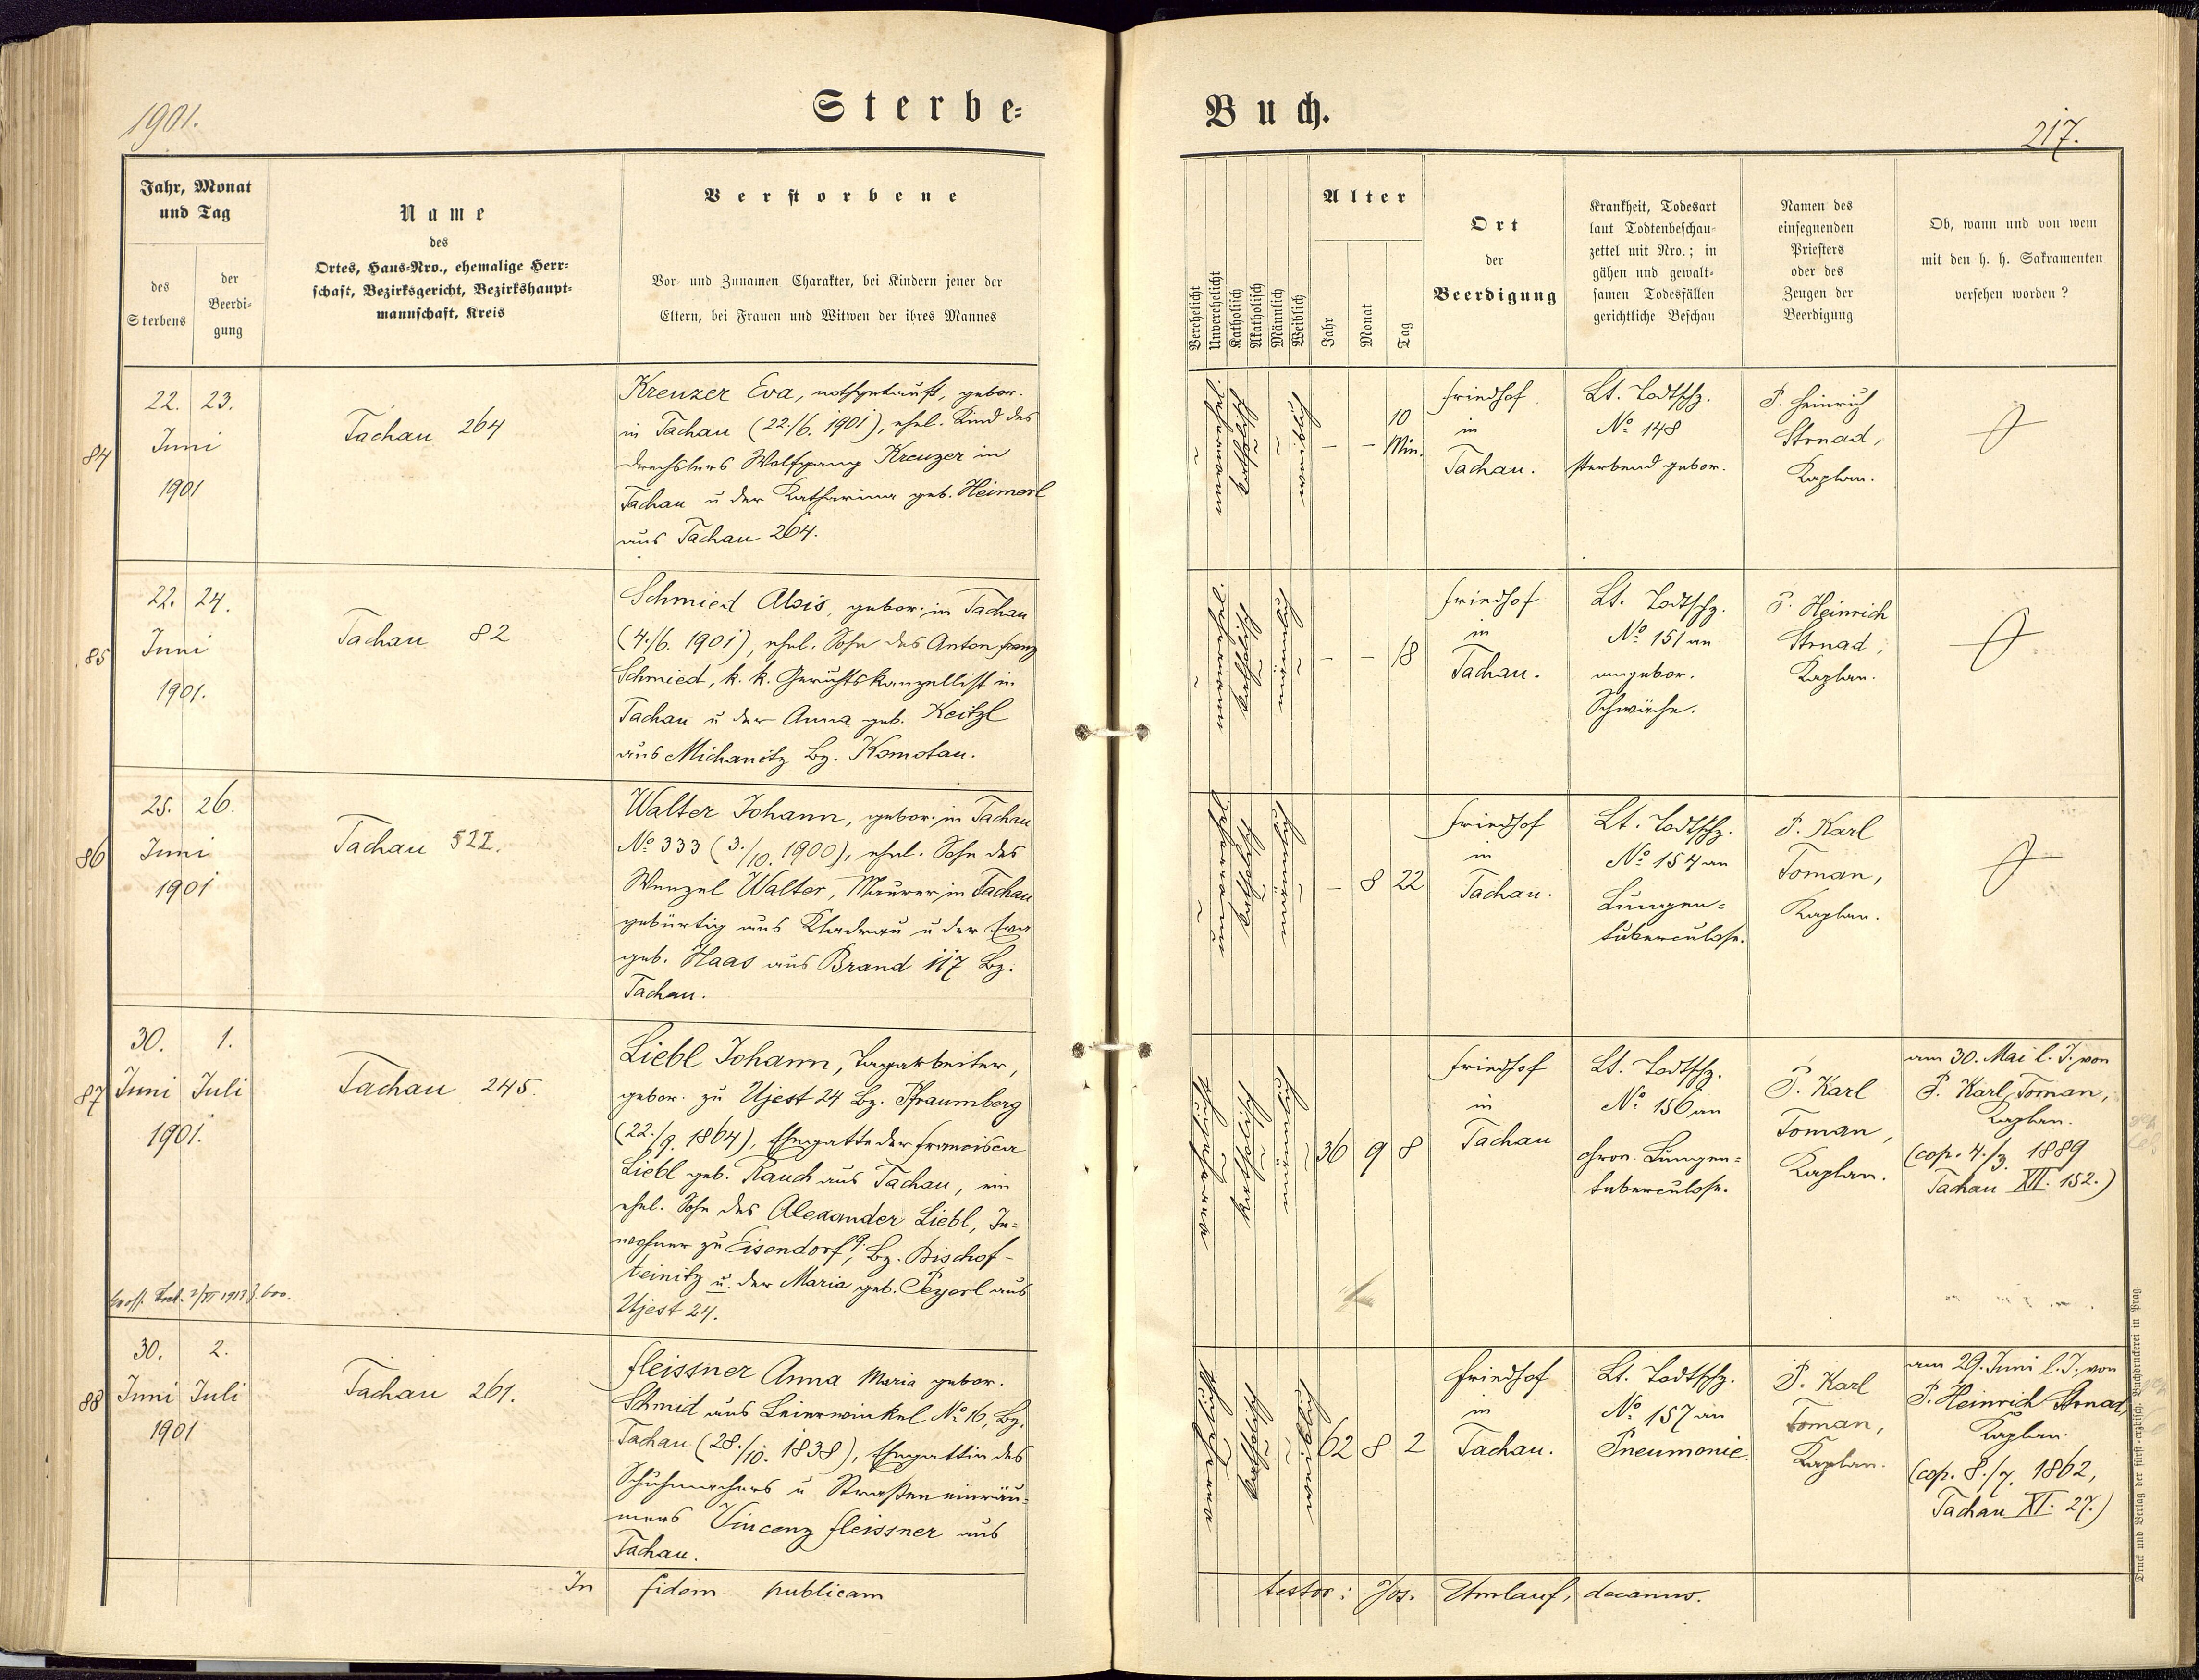 1901.
Sterbe-
Jahr, Monat
und Tag
des
Sterbens
der
Beerdi-
gung
Name
des
Ortes, Haus-Nro., ehemalige Herr-
schaft, Bezirksgericht, Bezirkshaupt-
mannschaft, Kreis
Verstorbene
Vor- und Zunamen Charakter, bei Kindern jener der
Eltern, bei Frauen und Witwen der ihres Mannes
84
22. 23.
Juni
1901
Tachau 264
Kreuzer Eva, nothgetauft, gebor.
in Tachau (22./6. 1901), ehel. Kind des
Drechslers Wolfgang Kreuzer in
Tachau u der Katharina geb. Heimerl
aus Tachau 264.
85
22. 24.
Juni
1901.
Tachau 82
Schmied Alois, gebor. in Tachau
(4./6. 1901), ehel. Sohn des Anton Franz
Schmied, k. k. Gerichtskanzellist in
Tachau u der Anna geb. Keitzl
aus Michanitz Bz. Komotau.
86
25. 26.
Juni
1901
Tachau 522.
Walter Johann, gebor. in Tachau
No 333 (3./10. 1900), ehel. Sohn des
Wenzel Walter, Maurer in Tachau
gebürtig aus Kladrau u der Eva
geb. Haas aus Brand 117 Bz.
Tachau.
87
30. 1.
Juni Juli
1901.
Tachau 245.
Liebl Johann, Tagarbeiter,
gebor. zu Ujest 24 Bz. Pfraumberg
(22./9. 1864), Ehegatte der Francisca
Liebl geb. Rauch aus Tachau, ein
ehel. Sohn des Alexander Liebl, In-
wohner zu Eisendorf 9. Bz. Bischof-
teinitz u. der Maria geb. Peyerl aus
Ujest 24.
1913
88
30. 2.
Juni Juli
1901
Tachau 261.
Fleissner Anna Maria gebor.
Schmid aus Leierwinkel No 16, Bz.
Tachau (28./10. 1838), Ehegattin des
Schuhmachers u Straßeneinräu-
mers Vincenz Fleissner aus
Tachau.
In fidem publicam
Buch.
217.
Verehelicht
Unverehelicht
Katholisch
Akatholisch
Männlich
Weiblich
Alter
Jahr
Monat
Tag
Ort
der
Beerdigung
Krankheit, Todesart
laut Todtenbeschau-
zettel mit Nro.; in
gähen und gewalt-
samen Todesfällen
gerichtliche Beschau
Namen des
einsegnenden
Priesters
oder des
Zeugen der
Beerdigung
Ob, wann und von wem
mit den h. h. Sakramenten
versehen worden?
unverehelicht
katholisch
weiblich
– – 10
Min.
Friedhof
in
Tachau.
Lt. Todtschz.
No 148
sterbend gebor.
P. Heinrich
Strnad,
Kaplan.
unverehelicht
katholisch
männlich
– – 18
Friedhof
in
Tachau.
Lt. Todtschz.
No 151 an
angebor.
Schwäche.
P. Heinrich
Strnad,
Kaplan.
unverehelicht
katholisch
männlich
– 8 22
Friedhof
in
Tachau.
Lt. Todtschz.
No 154 an
Lungen-
tuberculose.
P. Karl
Toman,
Kaplan.
verehelicht
katholisch
männlich
36 9 8
Friedhof
in
Tachau
Lt. Todtschz.
No 156 an
chron. Lungen-
tuberculose.
P. Karl
Toman,
Kaplan.
am 30. Mai l. J. von
P. Karl Toman,
Kaplan.
(cop. 4./3. 1889
Tachau XII. 152.)
verehelicht
katholisch
weiblich
62 8 2
Friedhof
in
Tachau.
Lt. Todtschz.
No 157 an
Pneumonie.
P. Karl
Toman,
Kaplan.
am 29. Juni l. J. von
P. Heinrich Strnad,
Kaplan.
(cop. 8./7. 1862,
Tachau XI. 27.)
testor: Jos. Umlauf, decanus.
Druck und Verlag der fürst-erzbisch. Buchdruckerei in Prag